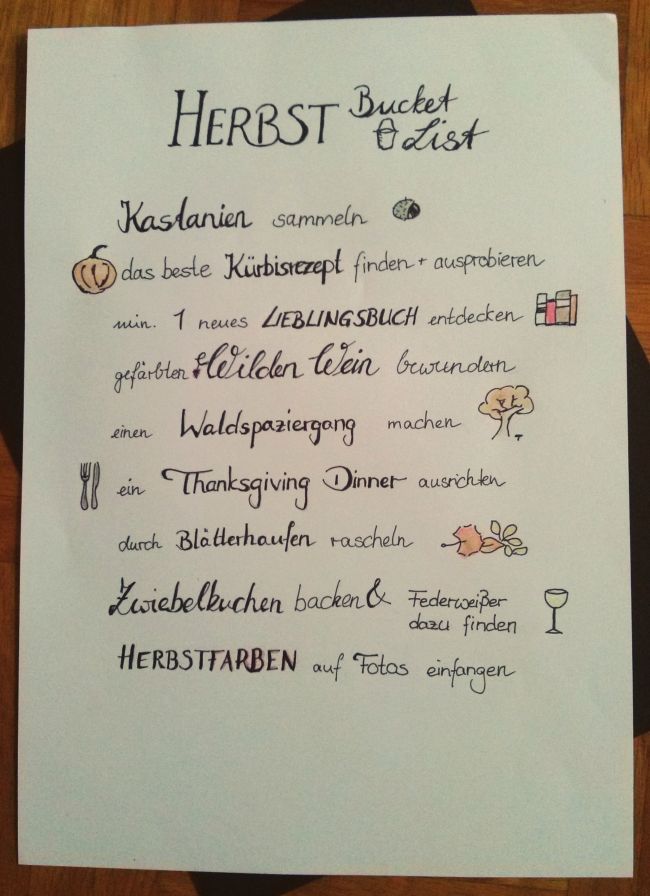 HERBST Bucket List
Kastanien sammeln
das beste Kürbisrezept finden + ausprobieren
min. 1 neues LIEBLINGSBUCH entdecken
gefärbten Wilden Wein bewundern
einen Waldspaziergang machen
ein Thanksgiving Dinner ausrichten
durch Blätterhaufen rascheln
Zwiebelkuchen backen & Federweißer dazu finden
HERBSTFARBEN auf Fotos einfangen